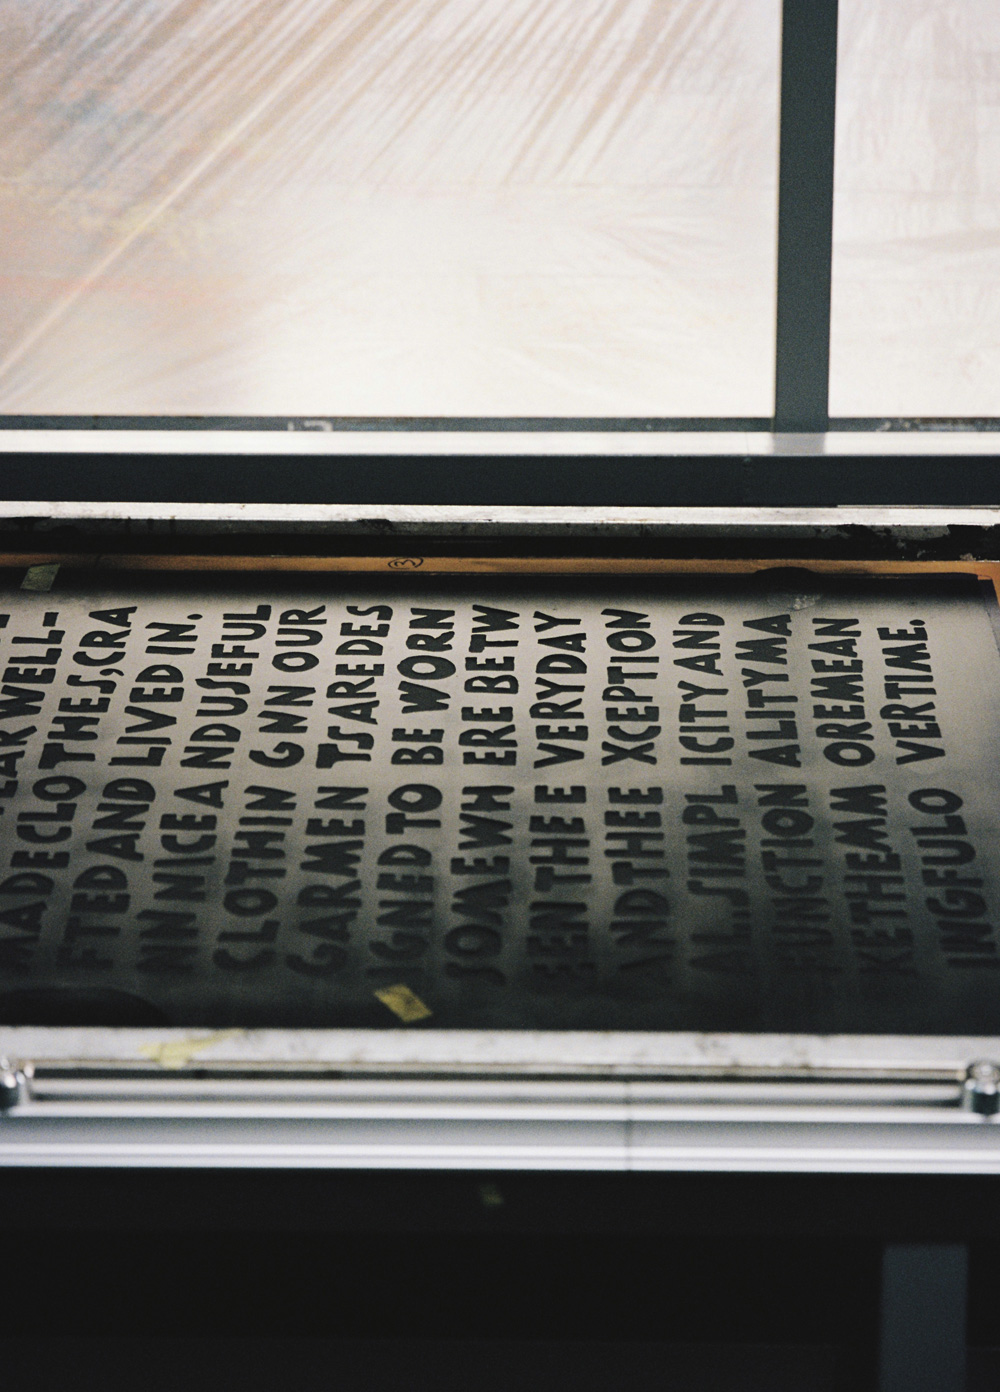 WELL-
MADE CLOTHES, CRA
FTED AND LIVED IN.
NN NICE AND USEFUL
CLOTHING NN OUR
GARMENTS ARE DES
IGNED TO BE WORN
SOMEWHERE BETW
EEN THE EVERYDAY
AND THE EXCEPTION
AL. SIMPLICITY AND
FUNCTIONALITY MA
KE THEM MORE MEAN
INGFUL OVERTIME.
3